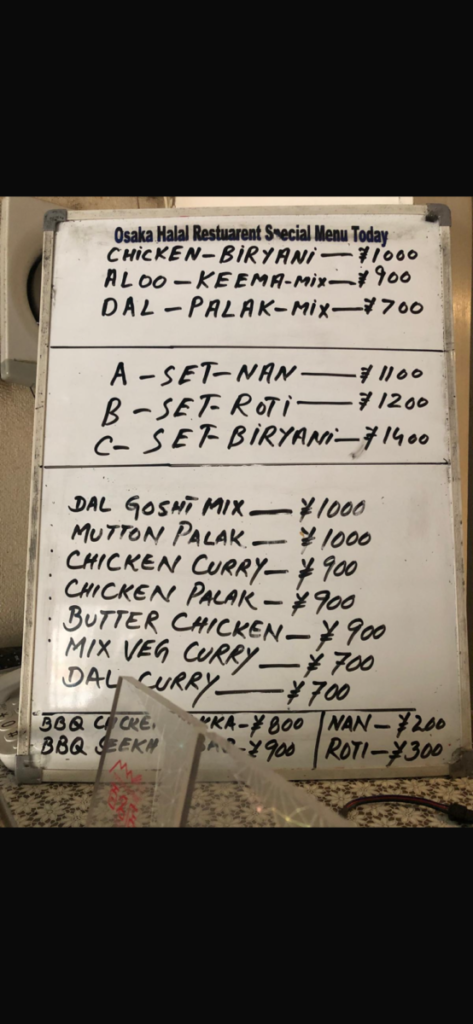 Osaka Halal Restuarent Special Menu Today
CHICKEN-BIRYANI-¥1000
ALOO-KEEMA-MIX-¥900
DAL-PALAK-MIX-¥700
A-SET-NAN-¥1100
B-SET-ROTI-¥1200
C-SET-BIRYANI-¥1400
DAL GOSHT MIX-¥1000
MUTTON PALAK-¥1000
CHICKEN CURRY-¥900
CHICKEN PALAK-¥900
BUTTER CHICKEN-¥900
MIX VEG CURRY-¥700
DAL CURRY-¥700
BBQ KKA-¥800
NAN-¥200
BBQ ¥900
ROTI-¥300